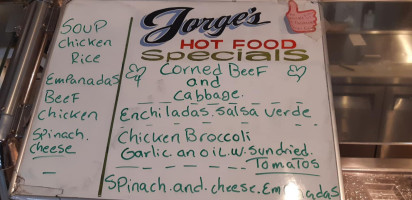 Jorge's
HOT FOOD
Specials
Soup
Chicken
Rice
Empanadas
Beef
Chicken
Spinach.
cheese
Corned Beef
and
Cabbage.
Enchiladas.salsa verde
Chicken Broccoli
Garlic.an oil.w.sundried.
Tomatos
Spinach.and.cheese.Empanadas